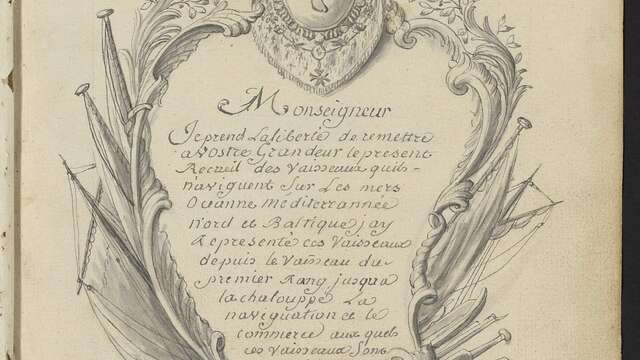 Monseigneur
Je prend Laliberté de remettre
a Vostre Grandeur le present
Recueil des Vaisseaux quils
naviguent Sur Les mers
Oceanne, Mediterrannée
Nord et Baltique jay
Representé ces Vaisseaux
depuis le Vaisseau du
premier Rang jusqua
la chalouppe La
naviguation et le
commerce aux quels
ces Vaisseaux Sont